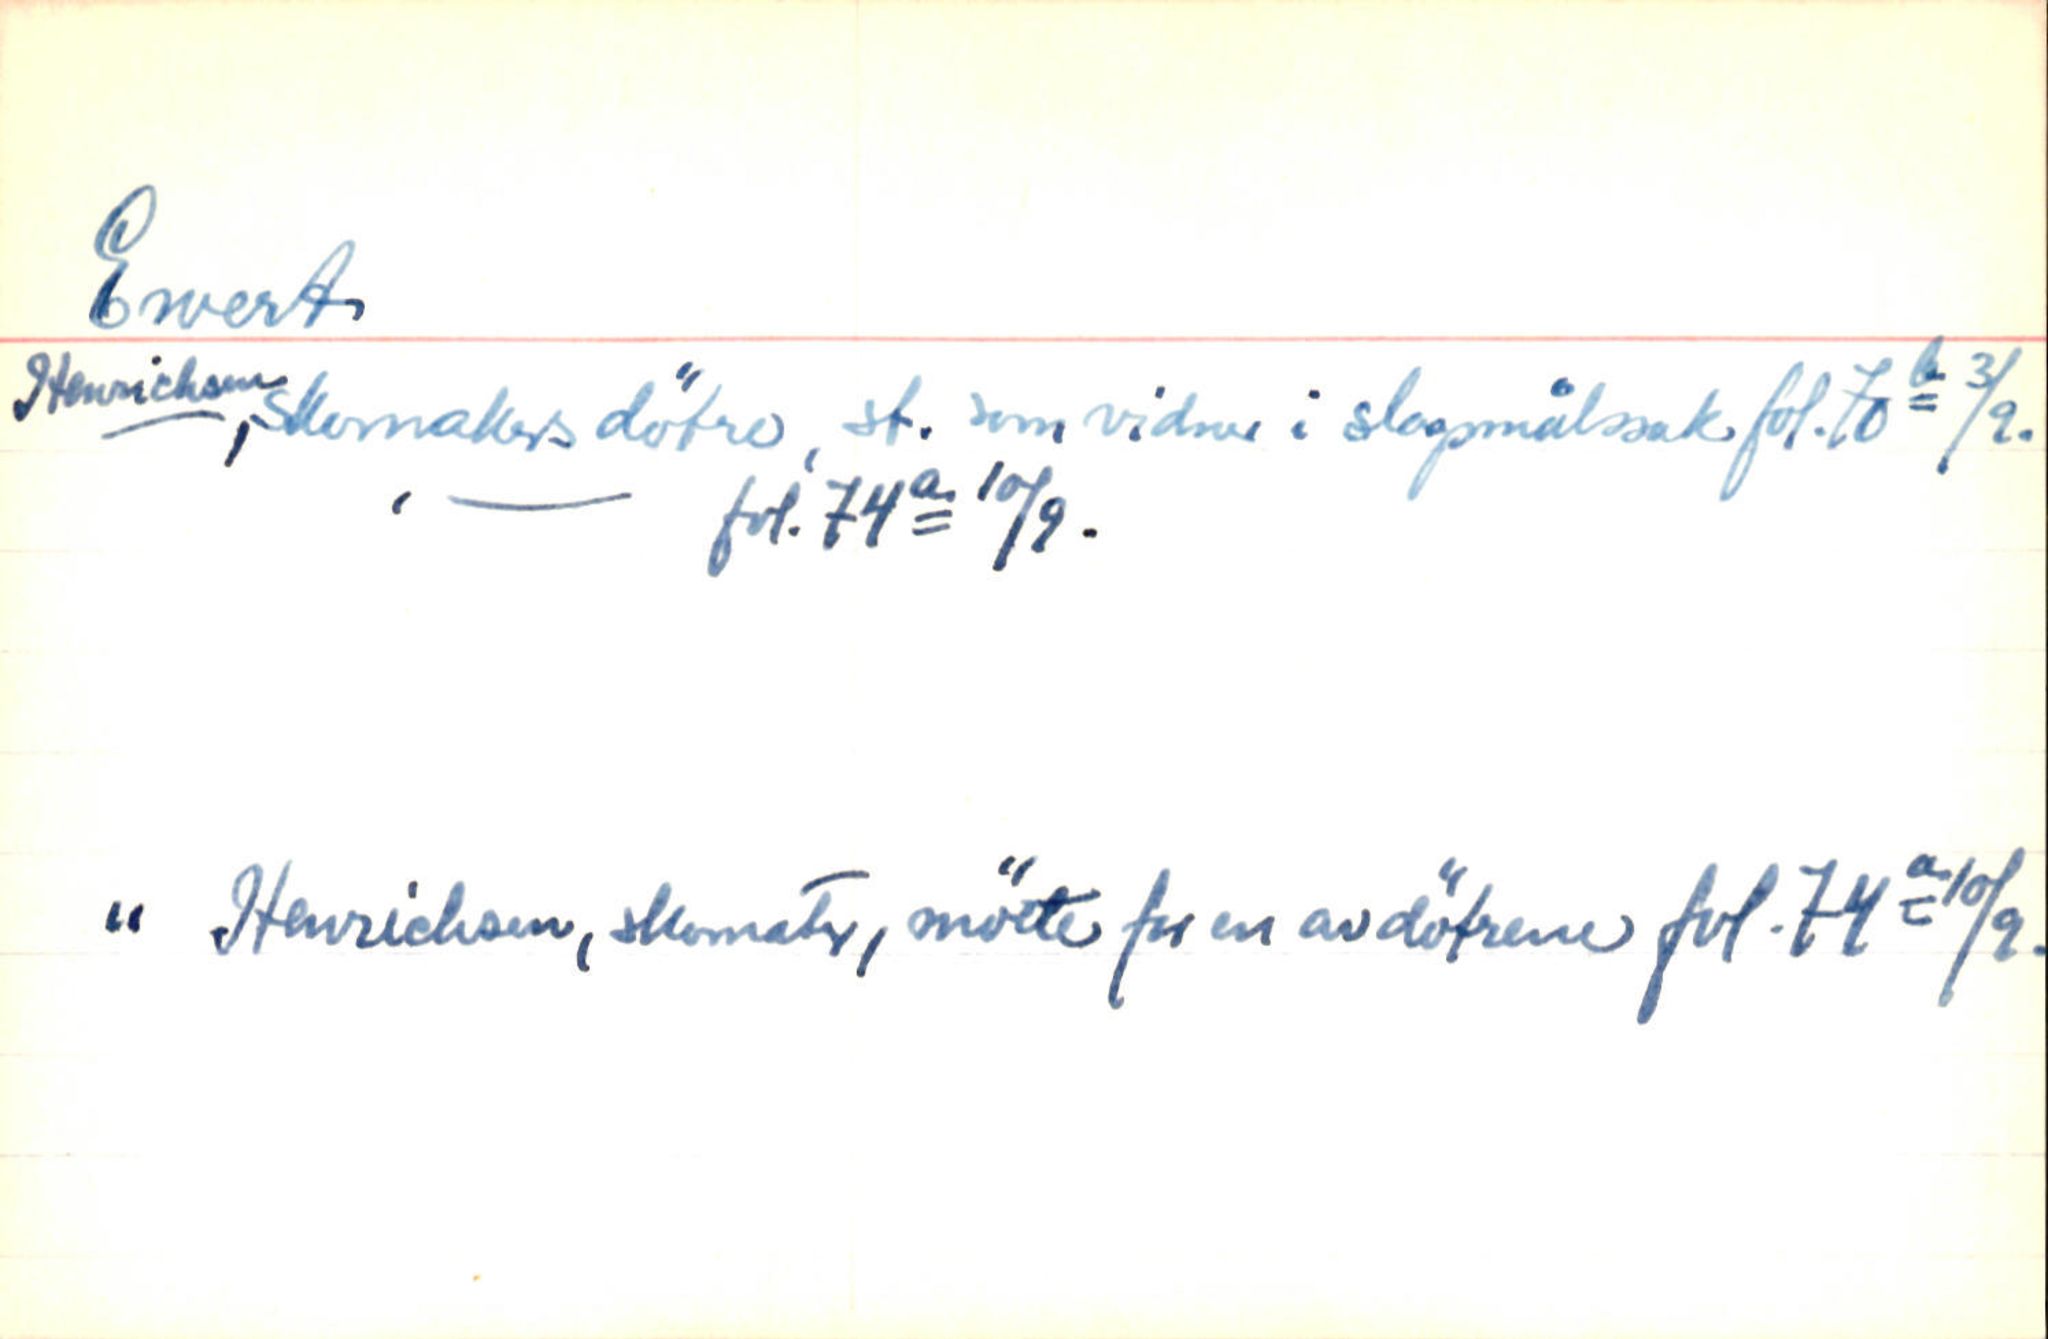 Ewert
Henrichsen, Skomakers dötre, st. som vidner i slagsmålssak fol. 70 b. 3/9.
" — fol. 74 a. 10/9.
" Henrichsen, skomaker, mötte for en av dötrene fol. 74 a. 10/9.